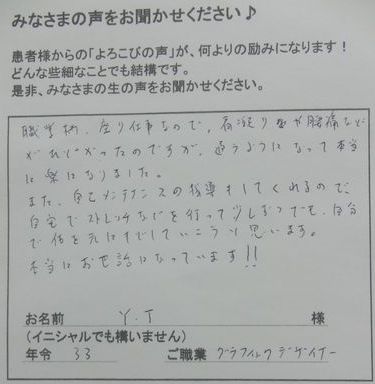 みなさまの声をお聞かせください♪
患者様からの「よろこびの声」が、何よりの励みになります！
どんな些細なことでも結構です。
是非、みなさまの生の声をお聞かせください。
職業柄、座り仕事なので、肩凝りや腰痛など
がひどかったのですが、通うようになって本当
に楽になりました。
また、自己メンテナンスの指導もしてくれるので、
自宅でストレッチなどを行って少しずつでも、自分
で体を元にもどしていこうと思います。
本当にお世話になっています!!
お名前 Y.T 様
(イニシャルでも構いません)
年令 33 ご職業 グラフィックデザイナー